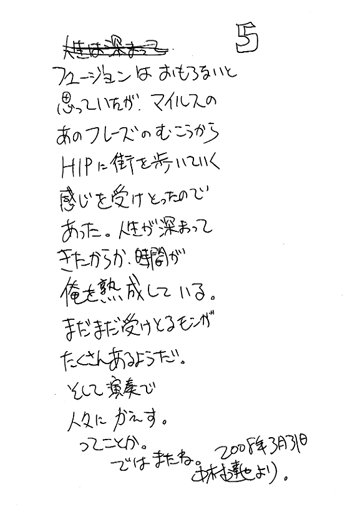 5
人生は深まって
フュージョンはおもろないと
思っていたが、マイルスの
あのフレーズのむこうから
HIPに街を歩いていく
感じを受けとったので
あった。人生が深まって
きたからか、時間が
俺を熟成している。
まだまだ受けとるモンが
たくさんあるようだ。
そして演奏で
人々に かえす。
ってことか。
ではまたね。
2008年3月31日
より。